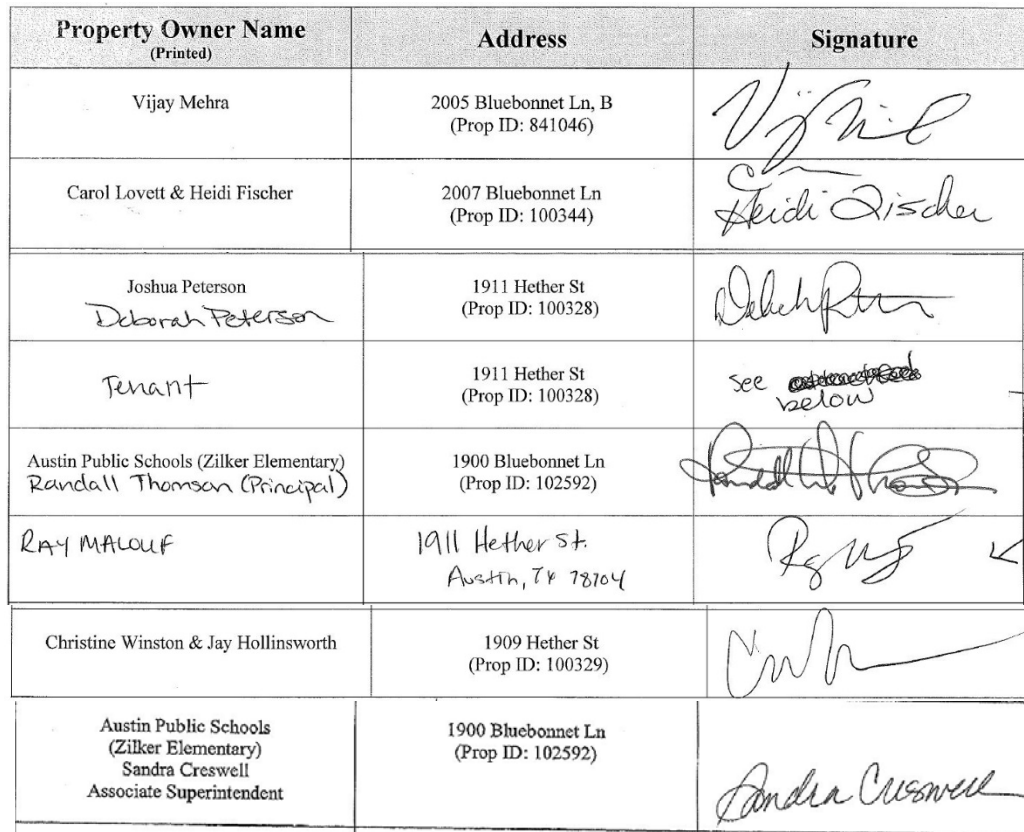 Property Owner Name
(Printed)
Address
Signature
Vijay Mehra
2005 Bluebonnet Ln, B
(Prop ID: 841046)
Carol Lovett & Heidi Fischer
2007 Bluebonnet Ln
(Prop ID: 100344)
Heidi Fischer
Joshua Peterson
Deborah Peterson
1911 Hether St
(Prop ID: 100328)
Tenant
1911 Hether St
(Prop ID: 100328)
see
below
Austin Public Schools (Zilker Elementary)
Randall Thomson (Principal)
1900 Bluebonnet Ln
(Prop ID: 102592)
RAY MALOUF
1911 Hether St.
Austin, TX 78704
Christine Winston & Jay Hollinsworth
1909 Hether St
(Prop ID: 100329)
Austin Public Schools
(Zilker Elementary)
Sandra Creswell
Associate Superintendent
1900 Bluebonnet Ln
(Prop ID: 102592)
Sandra Creswell